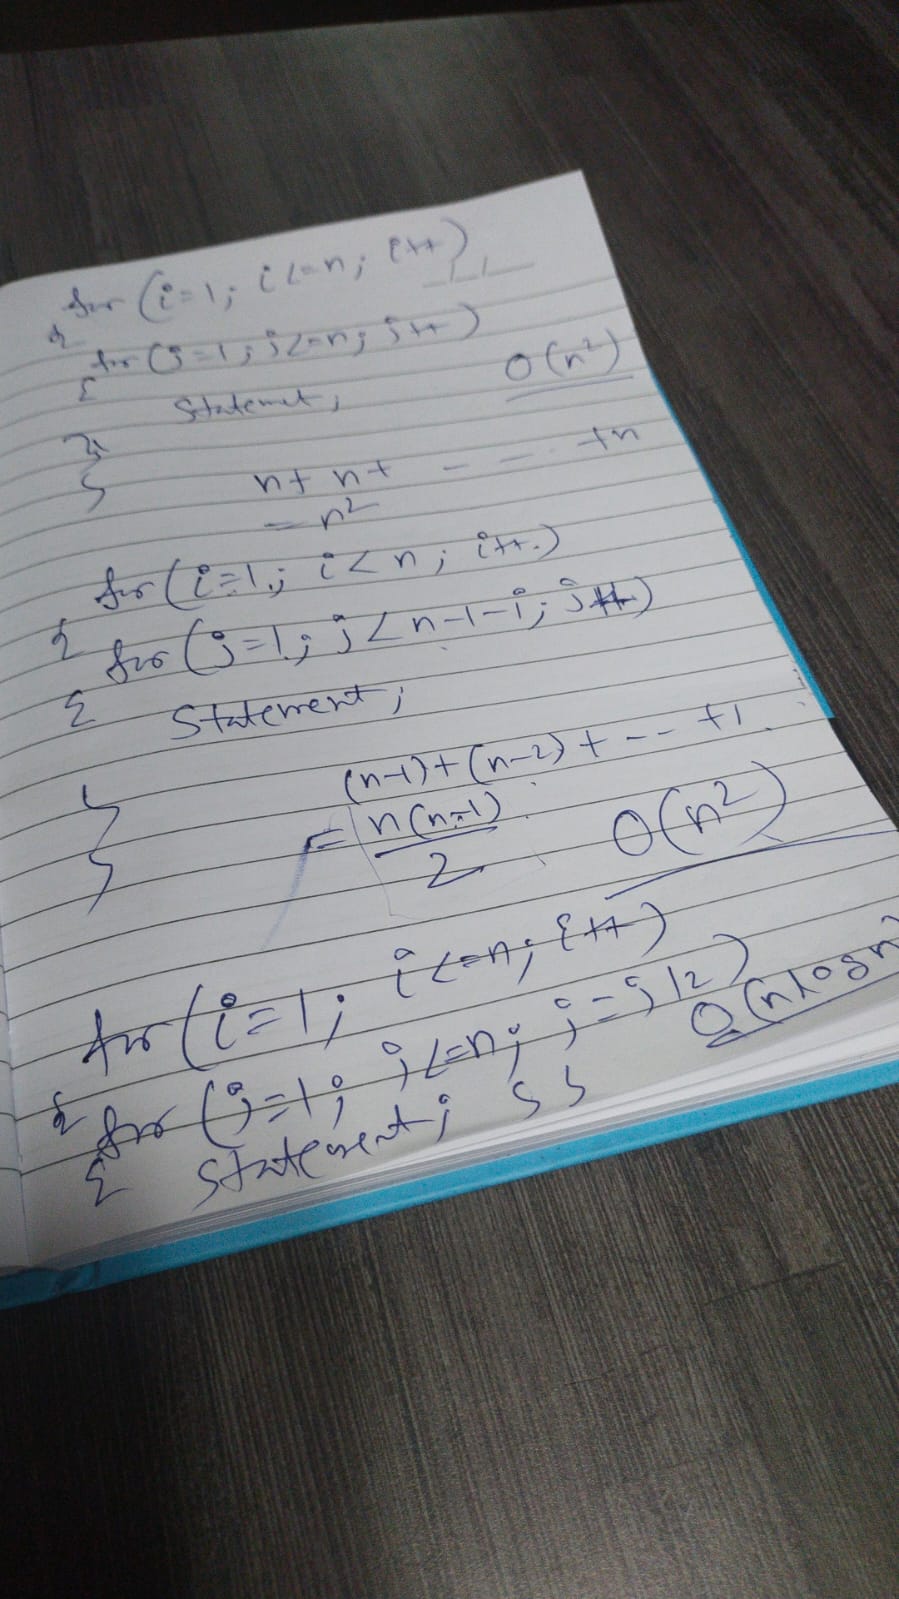 for (i=1; i<=n; i++)
{ for (j=1; j<=n; j++)
{ Statemet; O(n²)
}
} n+ n+ - - - +n
= n²
for (i=1; i<n; i++)
{ for (j=1; j<n-1-i; j++)
{ Statement;
} (n-1)+(n-2)+ -- +1
} = n(n-1)/2 O(n²)
for (i=1; i<=n; i++)
{ for (j=1; j<=n; j=j/2) O(nlogn)
{ Statement; } }